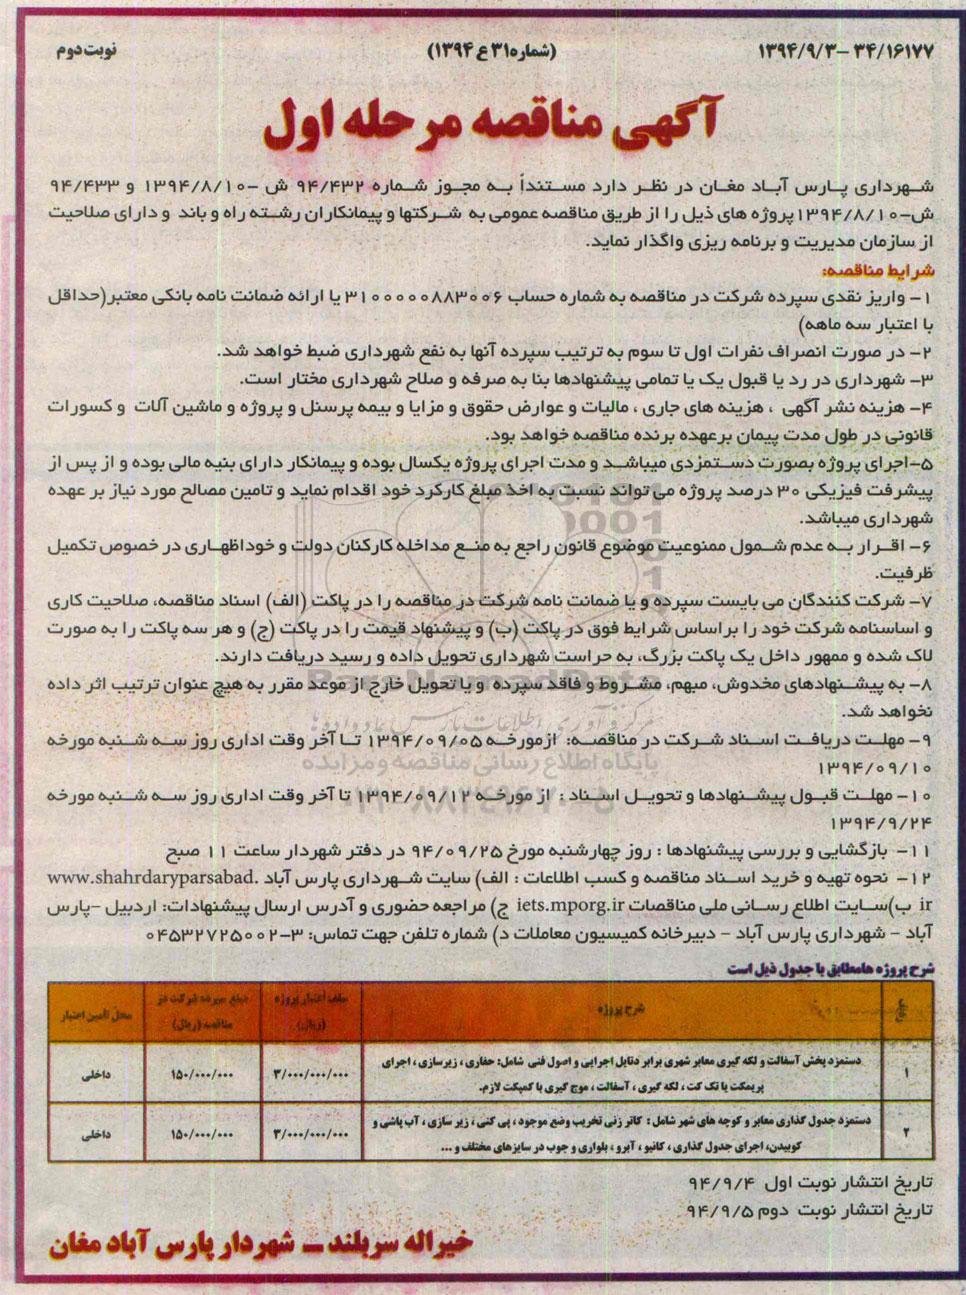 ۳۴/۱۶۱۷۷ –۱۳۹۴/۹/۳
(شماره ۳۱ع ۱۳۹۴)
نوبت دوم
آگهی مناقصه مرحله اول
شهرداری پارس آباد مغان در نظر دارد مستنداً به مجوز شماره ۹۴/۴۳۲ ش –۱۳۹۴/۸/۱۰ و ۹۴/۴۳۳
ش–۱۳۹۴/۸/۱۰ پروژه های ذیل را از طریق مناقصه عمومی به شرکتها و پیمانکاران رشته راه و باند و دارای صلاحیت
از سازمان مدیریت و برنامه ریزی واگذار نماید.
شرایط مناقصه:
۱– واریز نقدی سپرده شرکت در مناقصه به شماره حساب ۳۱۰۰۰۰۰۸۸۳۰۰۶ یا ارائه ضمانت نامه بانکی معتبر(حداقل
با اعتبار سه ماهه)
۲– در صورت انصراف نفرات اول تا سوم به ترتیب سپرده آنها به نفع شهرداری ضبط خواهد شد.
۳– شهرداری در رد یا قبول یک یا تمامی پیشنهادها بنا به صرفه و صلاح شهرداری مختار است.
۴– هزینه نشر آگهی ، هزینه های جاری ، مالیات و عوارض حقوق و مزایا و بیمه پرسنل و پروژه و ماشین آلات و کسورات
قانونی در طول مدت پیمان برعهده برنده مناقصه خواهد بود.
۵–اجرای پروژه بصورت دستمزدی میباشد و مدت اجرای پروژه یکسال بوده و پیمانکار دارای بنیه مالی بوده و از پس از
پیشرفت فیزیکی ۳۰ درصد پروژه می تواند نسبت به اخذ مبلغ کارکرد خود اقدام نماید و تامین مصالح مورد نیاز بر عهده
شهرداری میباشد.
۶– اقرار به عدم شمول ممنوعیت موضوع قانون راجع به منع مداخله کارکنان دولت و خوداظهاری در خصوص تکمیل
ظرفیت.
۷– شرکت کنندگان می بایست سپرده و یا ضمانت نامه شرکت در مناقصه را در پاکت (الف) اسناد مناقصه، صلاحیت کاری
و اساسنامه شرکت خود را براساس شرایط فوق در پاکت (ب) و پیشنهاد قیمت را در پاکت (ج) و هر سه پاکت را به صورت
لاک شده و ممهور داخل یک پاکت بزرگ، به حراست شهرداری تحویل داده و رسید دریافت دارند.
۸– به پیشنهادهای مخدوش، مبهم، مشروط و فاقد سپرده و یا تحویل خارج از موعد مقرر به هیچ عنوان ترتیب اثر داده
نخواهد شد.
۹– مهلت دریافت اسناد شرکت در مناقصه: ازمورخه ۱۳۹۴/۰۹/۰۵ تا آخر وقت اداری روز سه شنبه مورخه
۱۳۹۴/۰۹/۱۰
۱۰– مهلت قبول پیشنهادها و تحویل اسناد : از مورخه ۱۳۹۴/۰۹/۱۲ تا آخر وقت اداری روز سه شنبه مورخه
۱۳۹۴/۹/۲۴
۱۱– بازگشایی و بررسی پیشنهادها : روز چهارشنبه مورخ ۹۴/۰۹/۲۵ در دفتر شهردار ساعت ۱۱ صبح
۱۲– نحوه تهیه و خرید اسناد مناقصه و کسب اطلاعات : الف) سایت شهرداری پارس آباد www.shahrdaryparsabad.
ir ب)سایت اطلاع رسانی ملی مناقصات iets.mporg.ir ج) مراجعه حضوری و آدرس ارسال پیشنهادات: اردبیل –پارس
آباد – شهرداری پارس آباد – دبیرخانه کمیسیون معاملات د) شماره تلفن جهت تماس: ۳–۰۴۵۳۲۷۲۵۰۰۲
شرح پروژه هامطابق با جدول ذیل است
ردیف
شرح پروژه
سقف اعتبار پروژه (ریال)
مبلغ سپرده شرکت در مناقصه (ریال)
محل تأمین اعتبار
۱
دستمزد پخش آسفالت و لکه گیری معابر شهری برابر دتایل اجرایی و اصول فنی شامل: حفاری ، زیرسازی ، اجرای
پریمکت یا تک کت ، لکه گیری ، آسفالت ، موج گیری با کمپکت لازم.
۳/۰۰۰/۰۰۰/۰۰۰
۱۵۰/۰۰۰/۰۰۰
داخلی
۲
دستمزد جدول گذاری معابر و کوچه های شهر شامل : کاتر زنی تخریب وضع موجود ، پی کنی ، زیر سازی ، آب پاشی و
کوبیدن، اجرای جدول گذاری ، کانیو ، آبرو ، بلواری و جوب در سایزهای مختلف و ...
۳/۰۰۰/۰۰۰/۰۰۰
۱۵۰/۰۰۰/۰۰۰
داخلی
تاریخ انتشار نوبت اول ۹۴/۹/۴
تاریخ انتشار نوبت دوم ۹۴/۹/۵
خیراله سربلند – شهردار پارس آباد مغان
ParsNamadData
پایگاه اطلاع رسانی مناقصه و مزایده